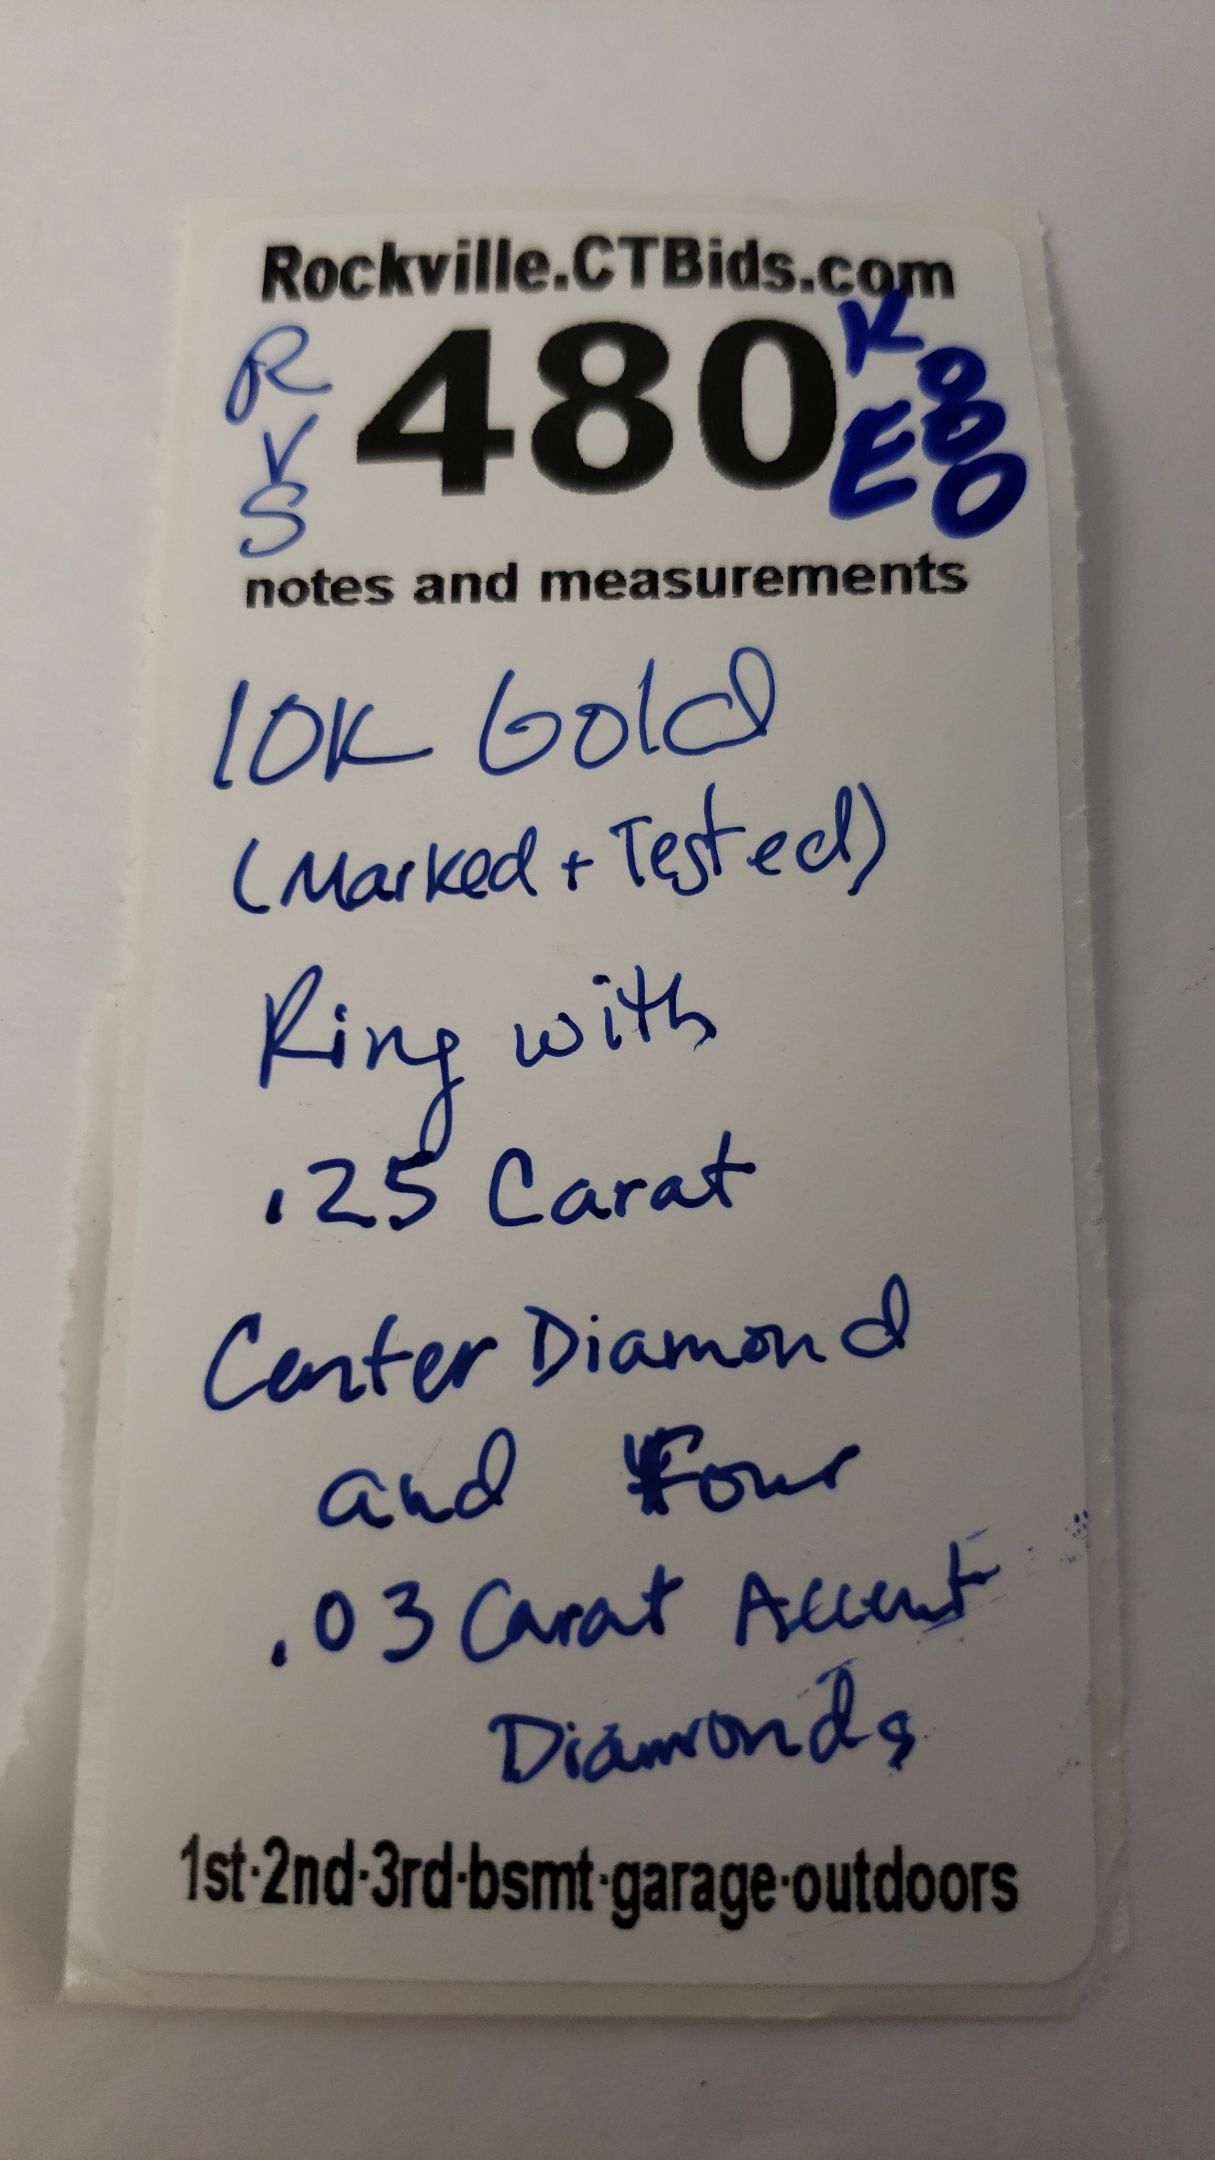 Rockville.CTBids.com
R
V
S
480
K
E
notes and measurements
10K Gold
(Marked + Tested)
Ring with
.25 Carat
Center Diamond
and Four
.03 Carat Accent
Diamonds
1st·2nd·3rd·bsmt·garage·outdoors